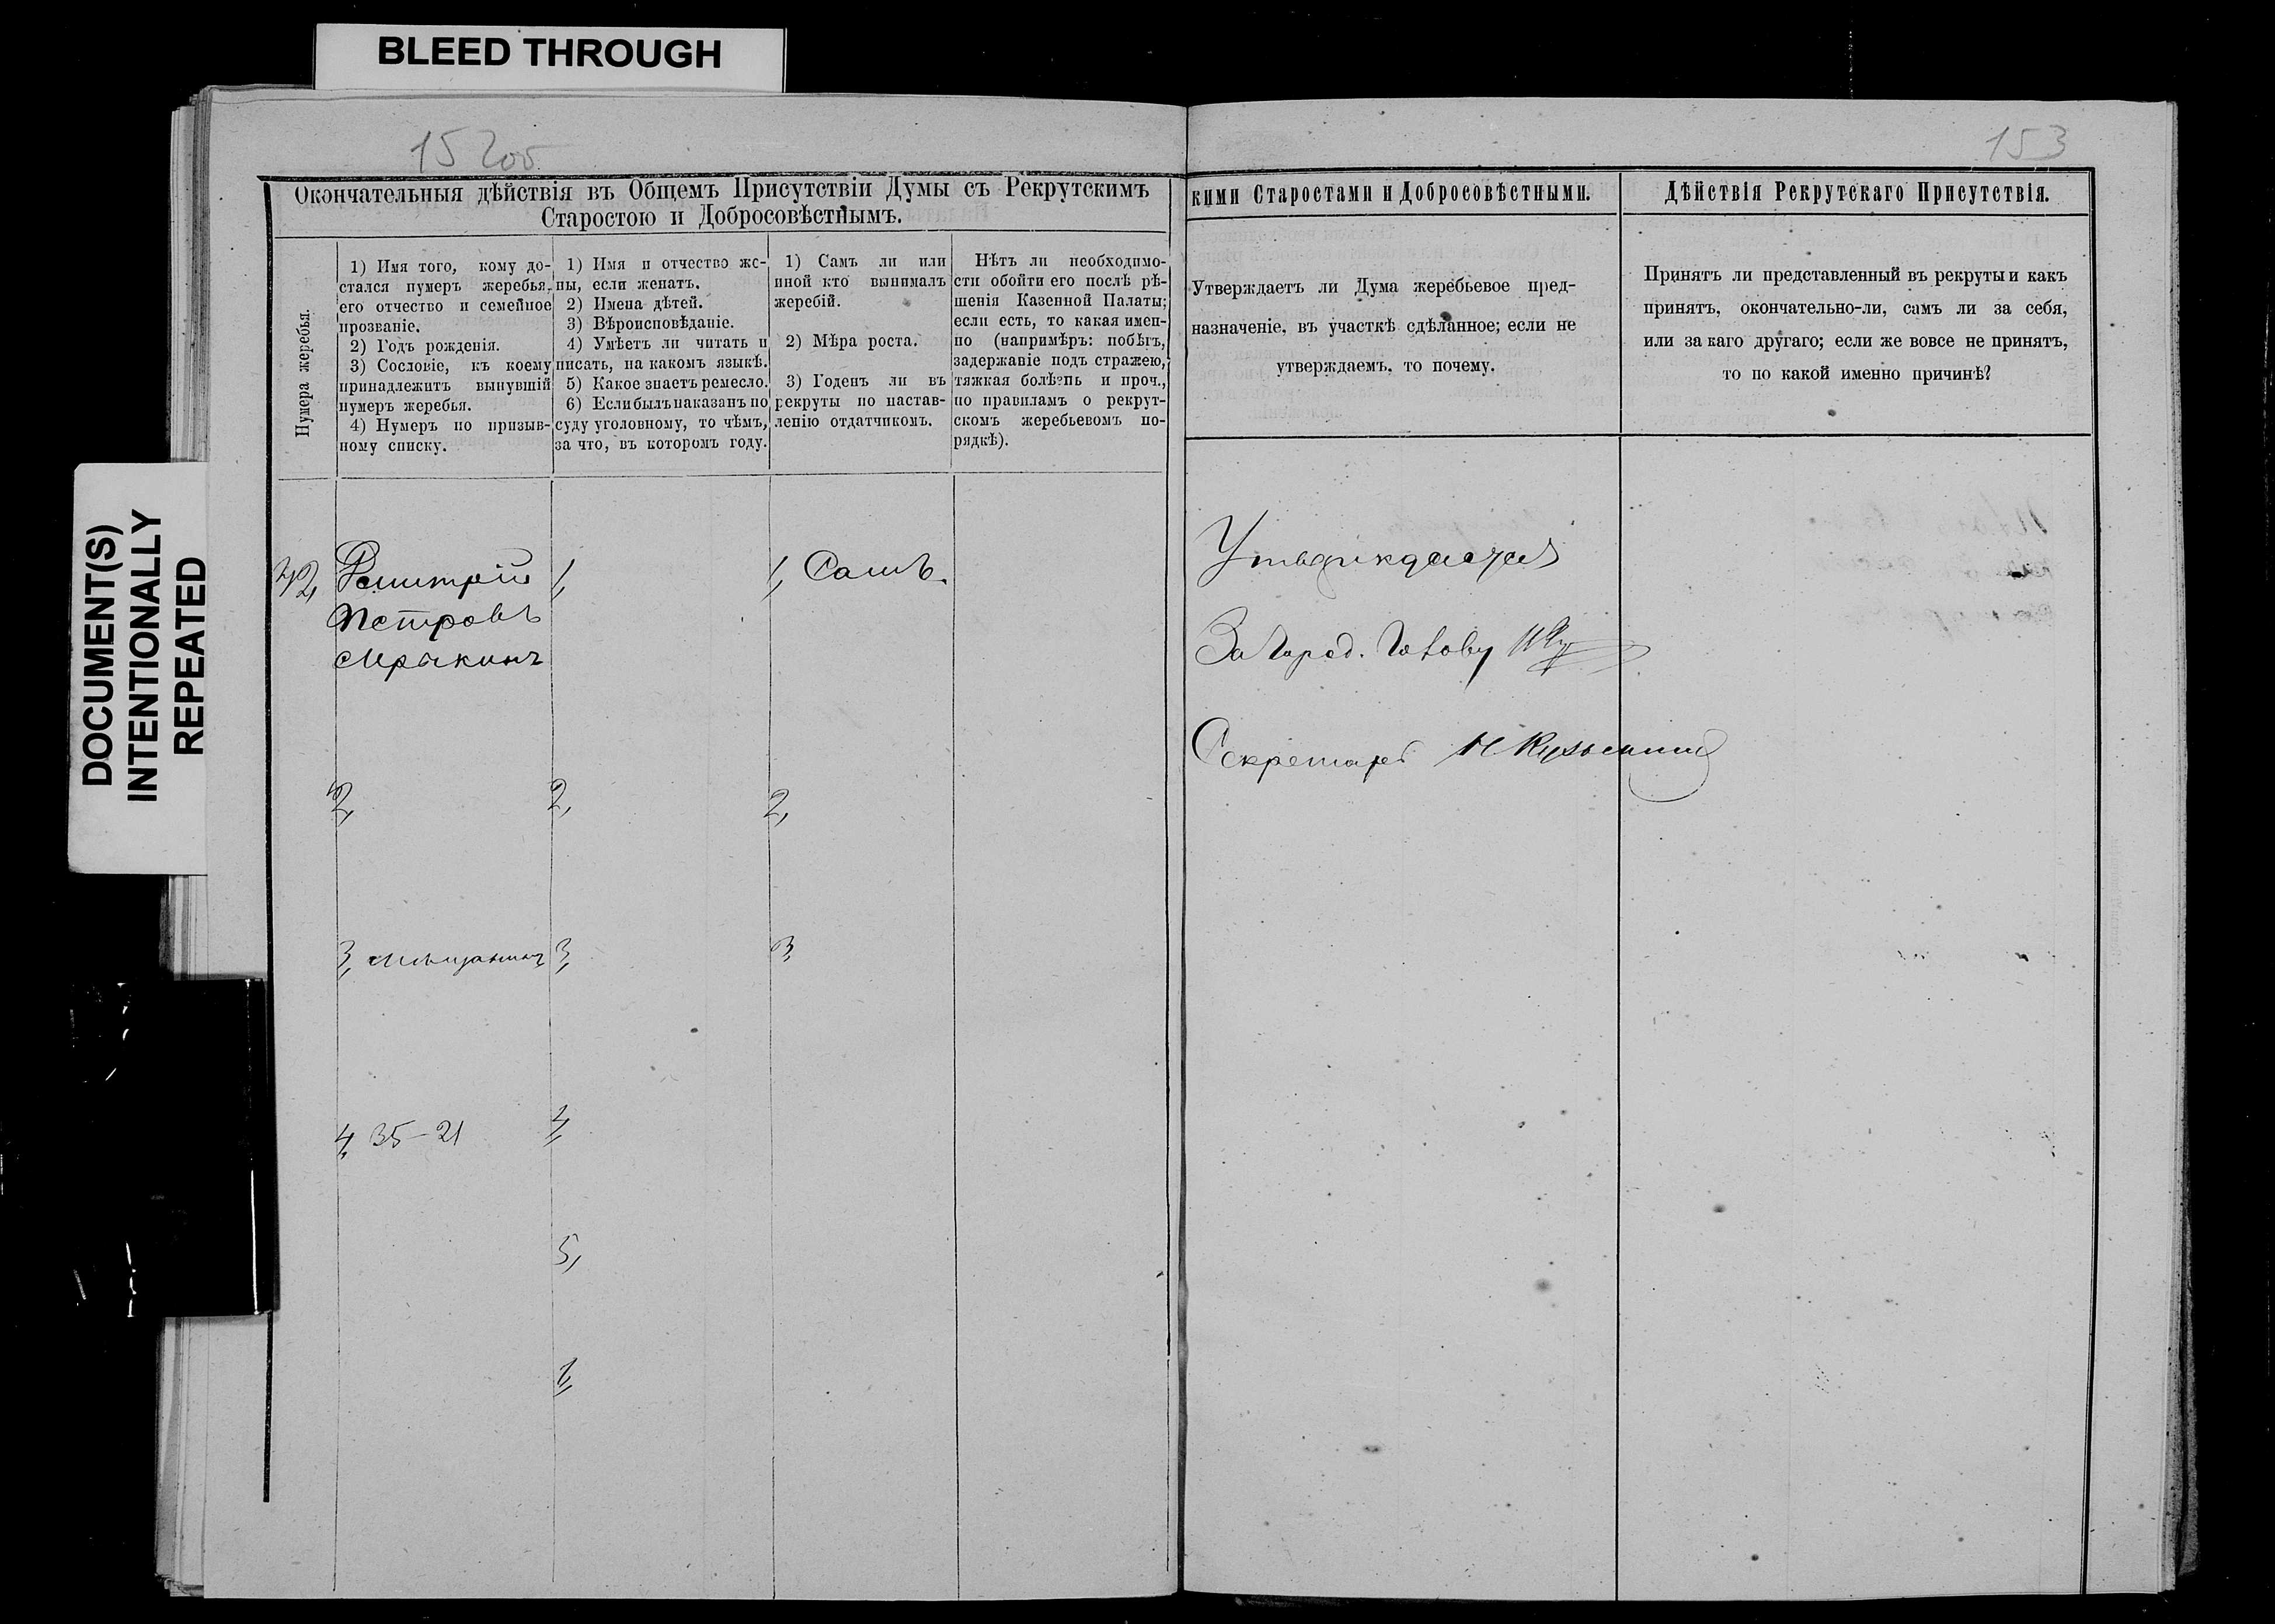 BLEED THROUGH
DOCUMENT(S)
INTENTIONALLY
REPEATED
153
Окончательныя дѣйствія въ Общемъ Присутствіи Думы съ Рекрутскимъ
Старостою и Добросовѣстнымъ.
Нумера жеребья.
1) Имя того, кому до-
стался нумеръ жеребья,
его отчество и семейное
прозваніе.
2) Годъ рожденія.
3) Сословіе, къ коему
принадлежитъ вынувшій
нумеръ жеребья.
4) Нумеръ по призыв-
ному списку.
1) Имя и отчество же-
ны, если женатъ.
2) Имена дѣтей.
3) Вѣроисповѣданіе.
4) Умѣетъ ли читать и
писать, на какомъ языкѣ.
5) Какое знаетъ ремесло.
6) Если былъ наказанъ по
суду уголовному, то чѣмъ,
за что, въ которомъ году.
1) Самъ ли или
иной кто вынималъ
жеребій.
2) Мѣра роста.
3) Годенъ ли въ
рекруты по настав-
ленію отдатчикомъ.
Нѣтъ ли необходимо-
сти обойти его послѣ рѣ-
шенія Казенной Палаты;
если есть, то какая имен-
но (напримѣръ: побѣгъ,
задержаніе подъ стражею,
тяжкая болѣзнь и проч.,
по правиламъ о рекрут-
скомъ жеребьевомъ по-
рядкѣ).
Дмитрій
Петровъ
Мрыкинъ
2,
3, Мѣщанинъ
4, 35-21
1,
2,
3,
4,
5,
1, Самъ.
2,
3,
кими Старостами и Добросовѣстными.
Утверждаетъ ли Дума жеребьевое пред-
назначеніе, въ участкѣ сдѣланное; если не
утверждаемъ, то почему.
Утверждается
За Город. Голову
Секретарь Н Кузьминъ
Дѣйствія Рекрутскаго Присутствія.
Принятъ ли представленный въ рекруты и какъ
принятъ, окончательно-ли, самъ ли за себя,
или за каго другаго; если же вовсе не принятъ,
то по какой именно причинѣ?